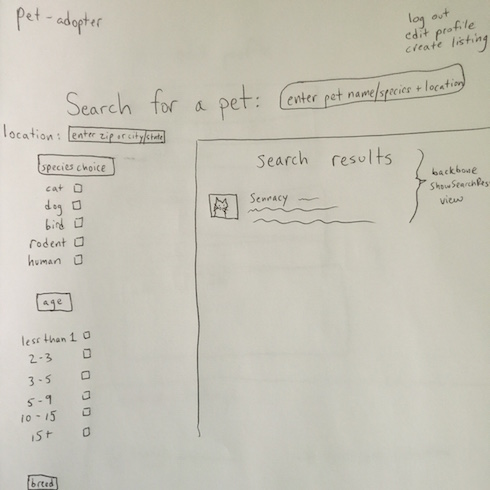 pet-adopter
log out
edit profile
create listing
Search for a pet:
enter pet name/species + location
location:
enter zip or city/state
species choice
cat
dog
bird
rodent
human
age
less than 1
2-3
3-5
5-9
10-15
15+
breed
search results
Sennacy
backbone
showSearchRes
view